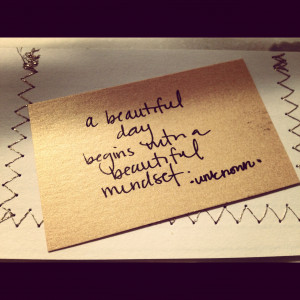 a beautiful
day
begins with a
beautiful
mindset.
-unknown.